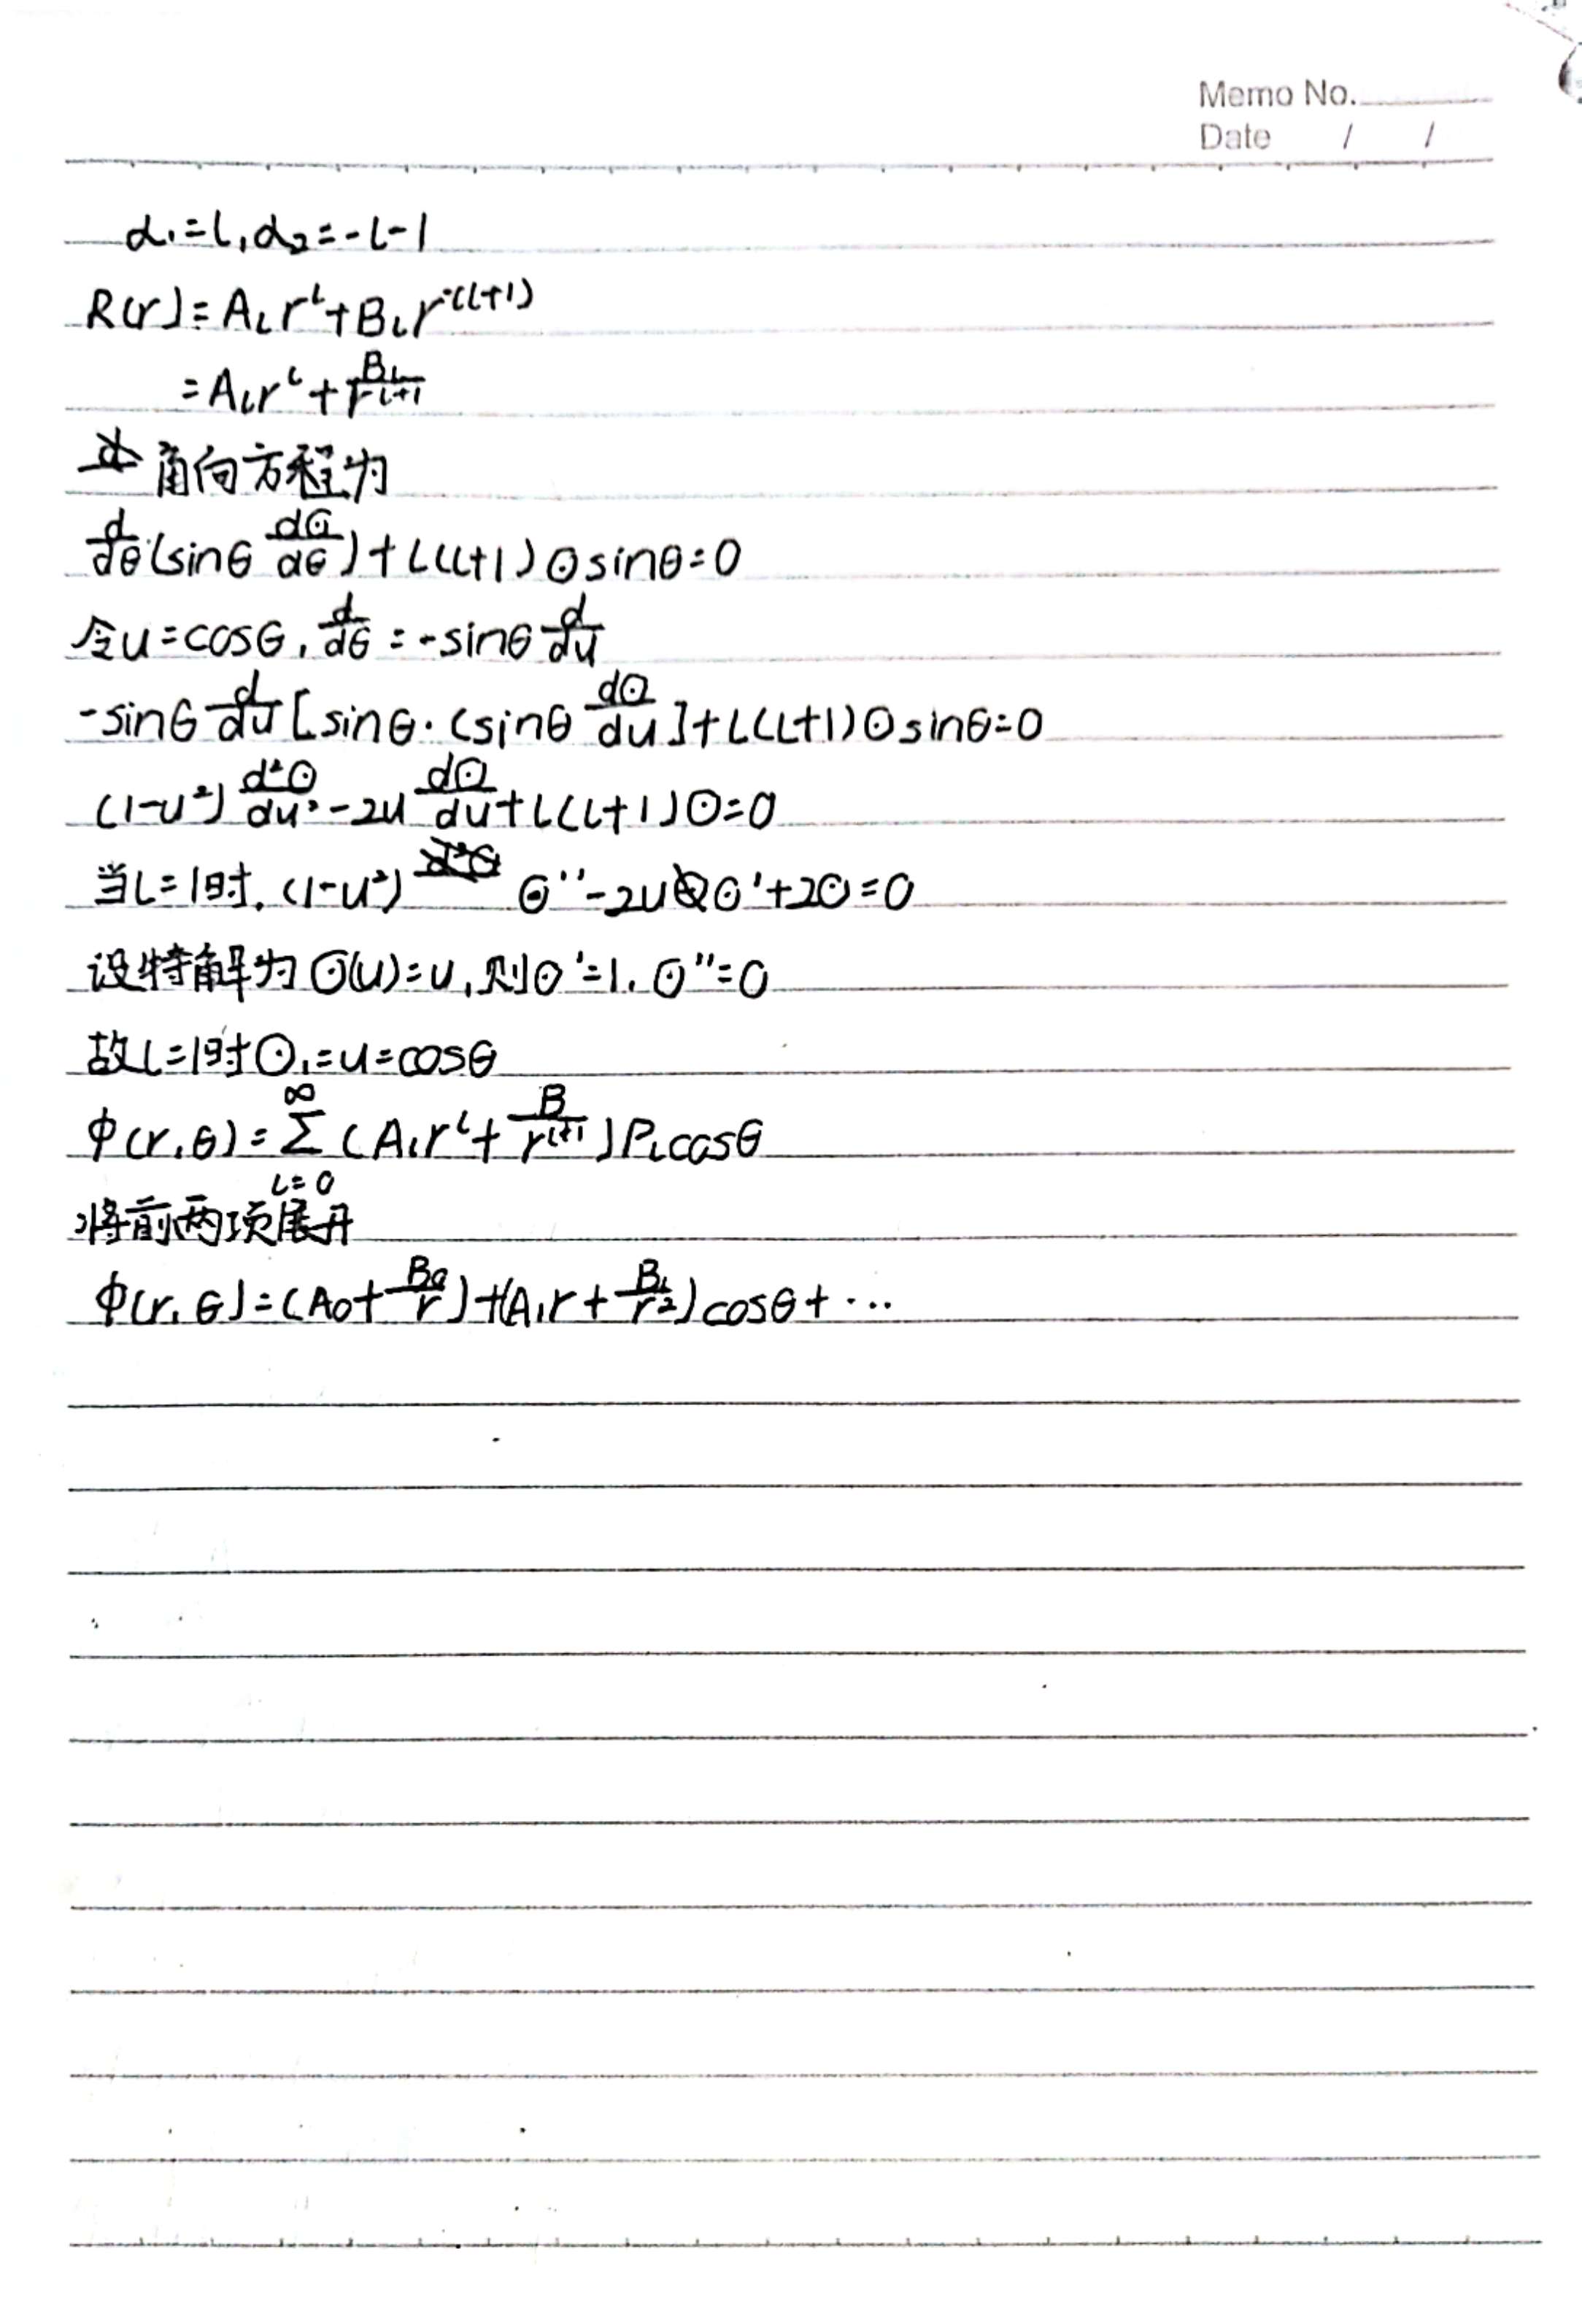 Memo No.
Date / /
α₁=l,α₂=-l-1
R(r)=A_l r^l+B_l r^-(l+1)
=A_l r^l+B_l/r^(l+1)
角向方程为
d/dθ(sinθ dΘ/dθ)+l(l+1)Θsinθ=0
令u=cosθ,d/dθ=-sinθ d/du
-sinθ d/du[sinθ·(sinθ dΘ/du]+l(l+1)Θsinθ=0
(1-u²)d²Θ/du²-2u dΘ/du+l(l+1)Θ=0
当l=1时,(1-u²) Θ''-2uΘ'+2Θ=0
设特解为Θ(u)=u,则Θ'=1,Θ''=0
故l=1时Θ₁=u=cosθ
φ(r,θ)=∑_(l=0)^∞(A_l r^l+B/r^(l+1))P_l cosθ
将前两项展开
φ(r,θ)=(A₀+B₀/r)+(A₁r+B₁/r²)cosθ+···